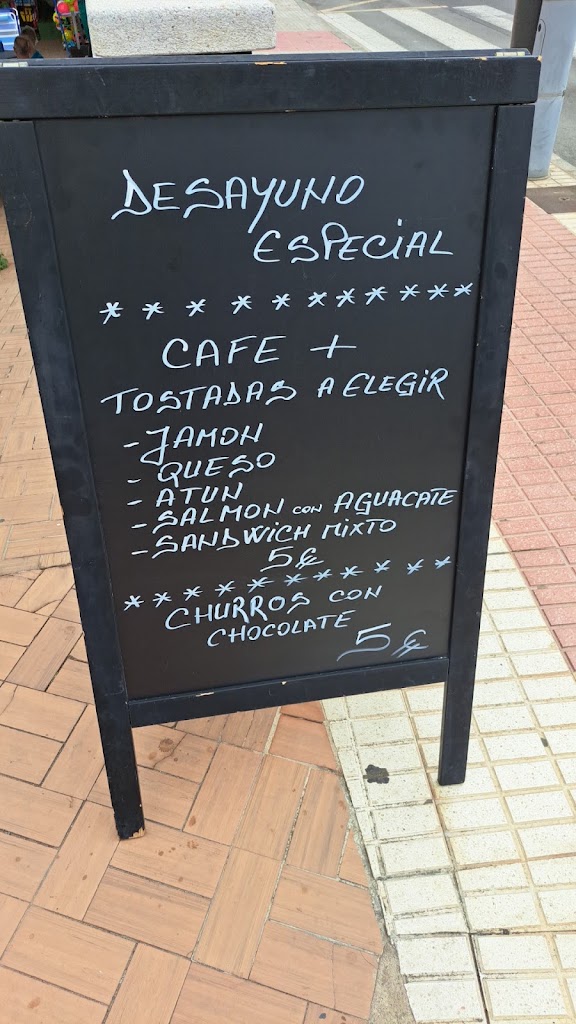 DESAYUNO
ESPECiAL
* * * * * * * * * *
CAFE +
TOSTADAS A ELEGiR
- JAMON
- QUESO
- ATUN
- SALMON CON AGUACATE
- SANDWiCH MiXTO
5€
* * * * * * * * * * *
CHURROS CON
CHOCOLATE
5€